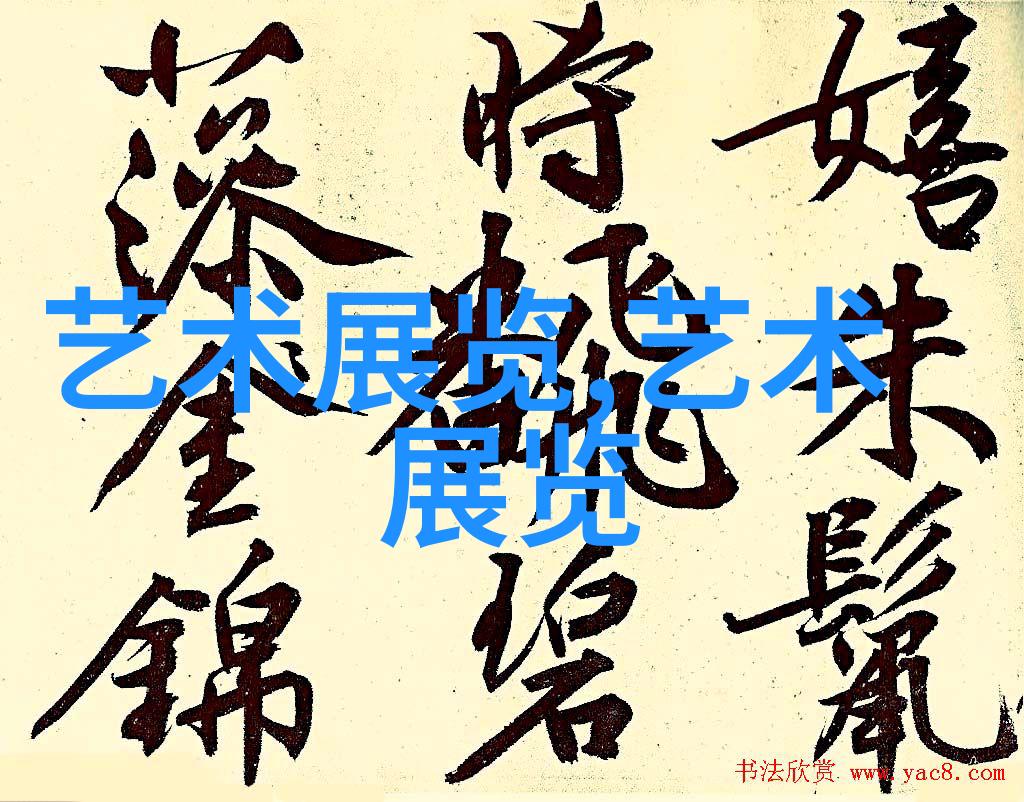 嬉朱鬣
時飜碧
藻錦
艺术展览,艺术
展览
书法欣赏 www.yac8.com